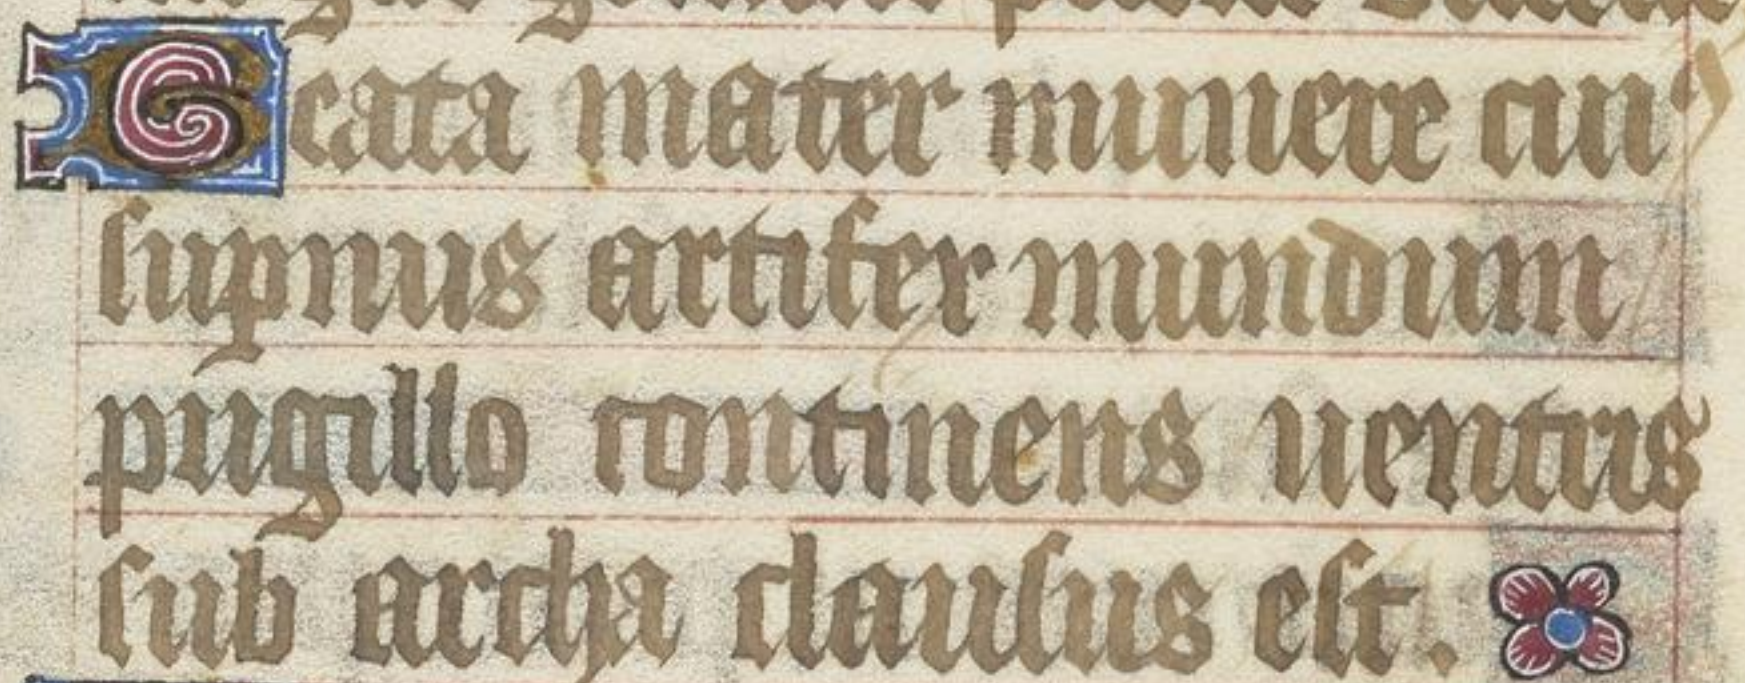 Beata mater munere cuiꝰ
suꝑnus artifex mundum
pugillo continens uentris
sub archa clausus est.